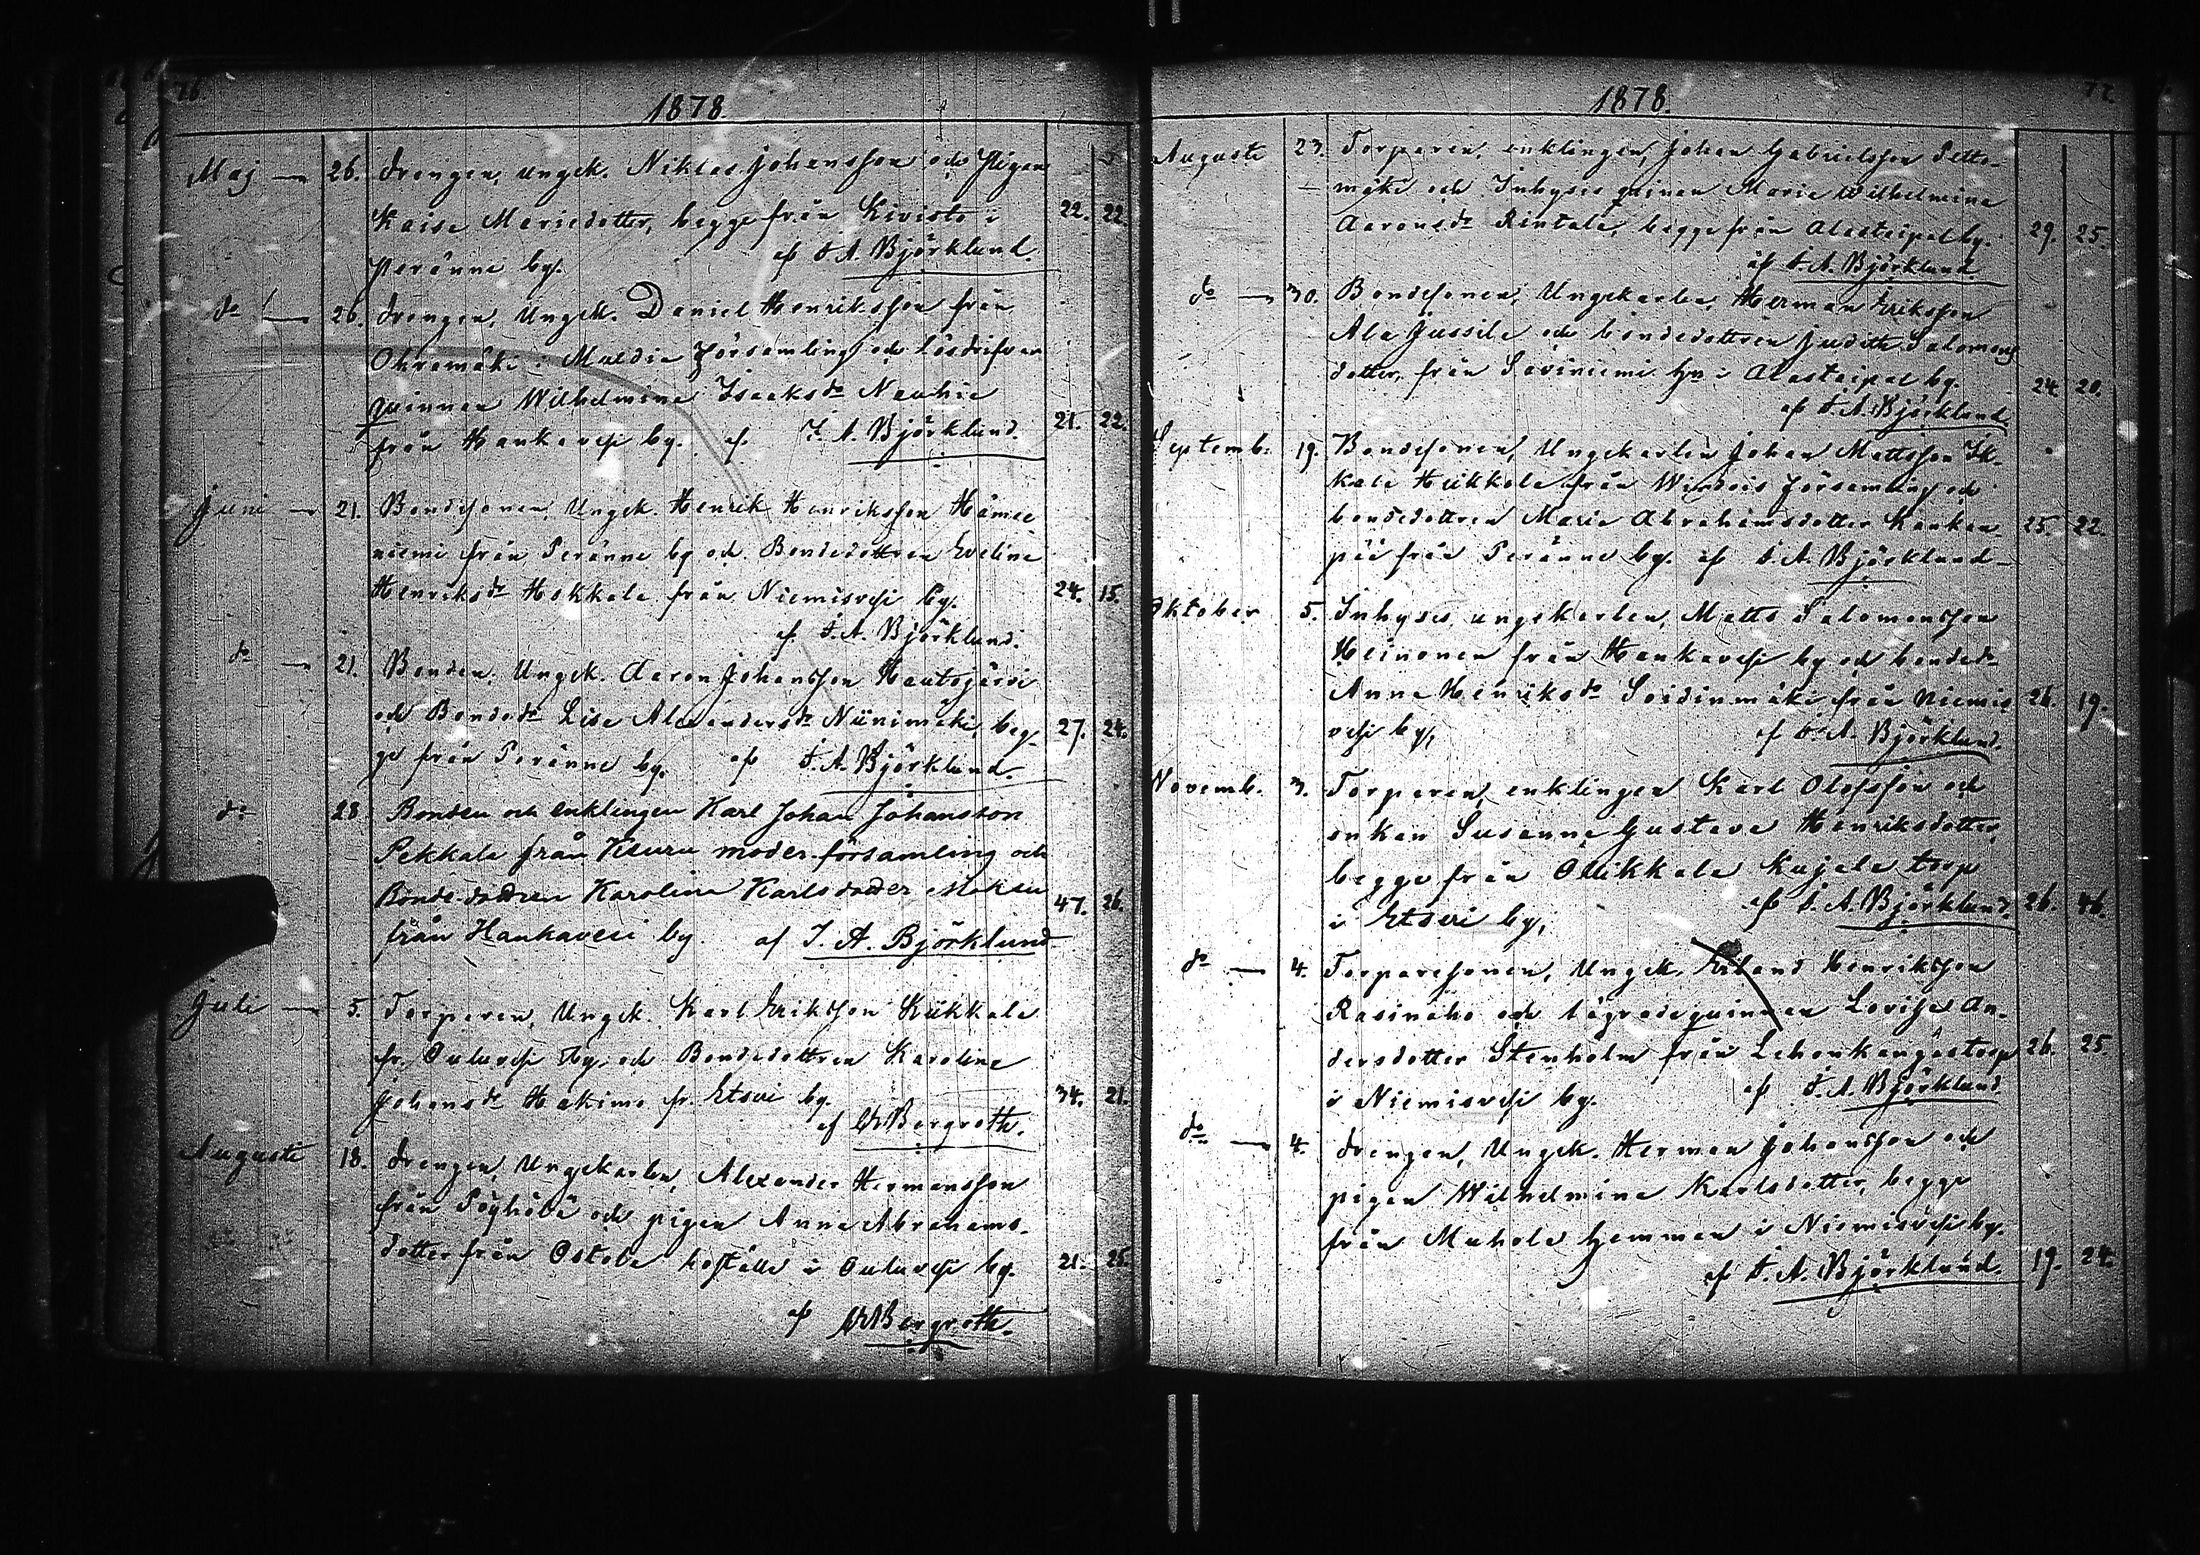 76
1878.
Maj 26. Drengen, ungk. Niklas Johansson och Pigan
Kaisa Mariedotter, begge från Kivisto i 22. 22
Peränne by. af F. A. Björklund.
do 26. Drengen, Ungk. Daniel Henriksson från
Ohramäki i Multia församling och lösdrifvare
qvinnan Wilhelmina Isaksdr Nauhia
från Hankavesi by. af F. A. Björklund. 21. 22.
Juni 21. Bondesonen, Ungk. Henrik Henriksson Hämee
niemi från Peränne by och Bondedottren Evelina
Henriksdr Hokkala från Niemisvesi by. 24. 15.
af F. A. Björklund.
do 21. Bonden, Ungk. Aaron Johansson Hautojärvi
och Bondedr Lisa Alexandersdr Niinimäki, beg- 27. 24.
ge från Peränne by. af F. A. Björklund.
do 28 Bonden och enklingen Karl Johan Johansson
Pekkala från Keuru moder församling och
Bonde-dottren Karolina Karlsdotter 47. 26.
från Hankavesi by. af F. A. Björklund
Juli 5. Torparen, Ungk. Karl Eriksson Kukkala
fr. Ouluvesi by, och Bondedottren Karolina
Johansdr Hakima fr. Etseri by. 34. 21.
af Bergroth.
Augusti 18. Drengen, Ungkarlen, Alexander Hermansson
från Pöyhölä och pigan Anna Abrahams-
dotter från Ostola boställe i Ouluvesi by. 21. 25.
af Bergroth.
1878.
Augusti 23. Torparen, enklingen, Johan Gabrielsson Petto-
mäki och Inhyses qvinnan Maria Wilhelmina
Aaronsdr Rintala, begge från Alastaipal by. 29. 25.
af F. A. Björklund
do 30. Bondesonen, Ungkarlen, Herman Eriksson
Ala Jussila och bondedottren Judith Salomons
dotter, från Saviniemi hn i Alastaipal by. 24. 20.
af F. A. Björklund.
Septemb. 19. Bondesonen, Ungkarlen Johan Mattsson Ik-
kala Heikkola från Wirdois församling och
bondedottren Maria Abrahamsdotter Kankan- 25. 22.
pää från Peränne by. af F. A. Björklund
Oktober 5. Inhyses, ungkarlen, Matts Salomonsson
Heinonen från Hankavesi by och bondedr
Anna Henriksdr Soidinmäki från Niemis 26. 19.
vesi by, af F. A. Björklund.
Novemb. 3. Torparen, enklingen Karl Olofsson och
enkan Susanna Gustava Henriksdotter,
begge från Ollikkala Kujala torp
i Etseri by, af F. A. Björklund. 26. 46.
do 4. Torparesonen, Ungk. Erland Henriksson
Rasinaho och lägradeqvinnan Lovisa An-
dersdotter Stenholm från Lehonkangas torp 26. 25.
i Niemisvesi by. af F. A. Björklund.
do 4. Drengen, Ungk. Herman Johansson och
pigan Wilhelmina Karlsdotter, begge
från Mahola hemman i Niemisvesi by.
af F. A. Björklund. 19. 24.